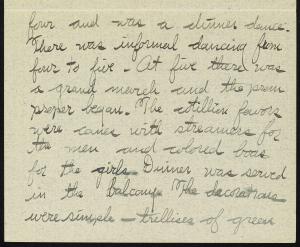 four and was a dinner dance.
There was informal dancing from
four to five - At five there was
a grand march and the prom
proper began. The cotillion favors
were canes with streamers for
the men and colored boas
for the girls. Dinner was served
in the balcony. The decorations
were simple - trellises of green